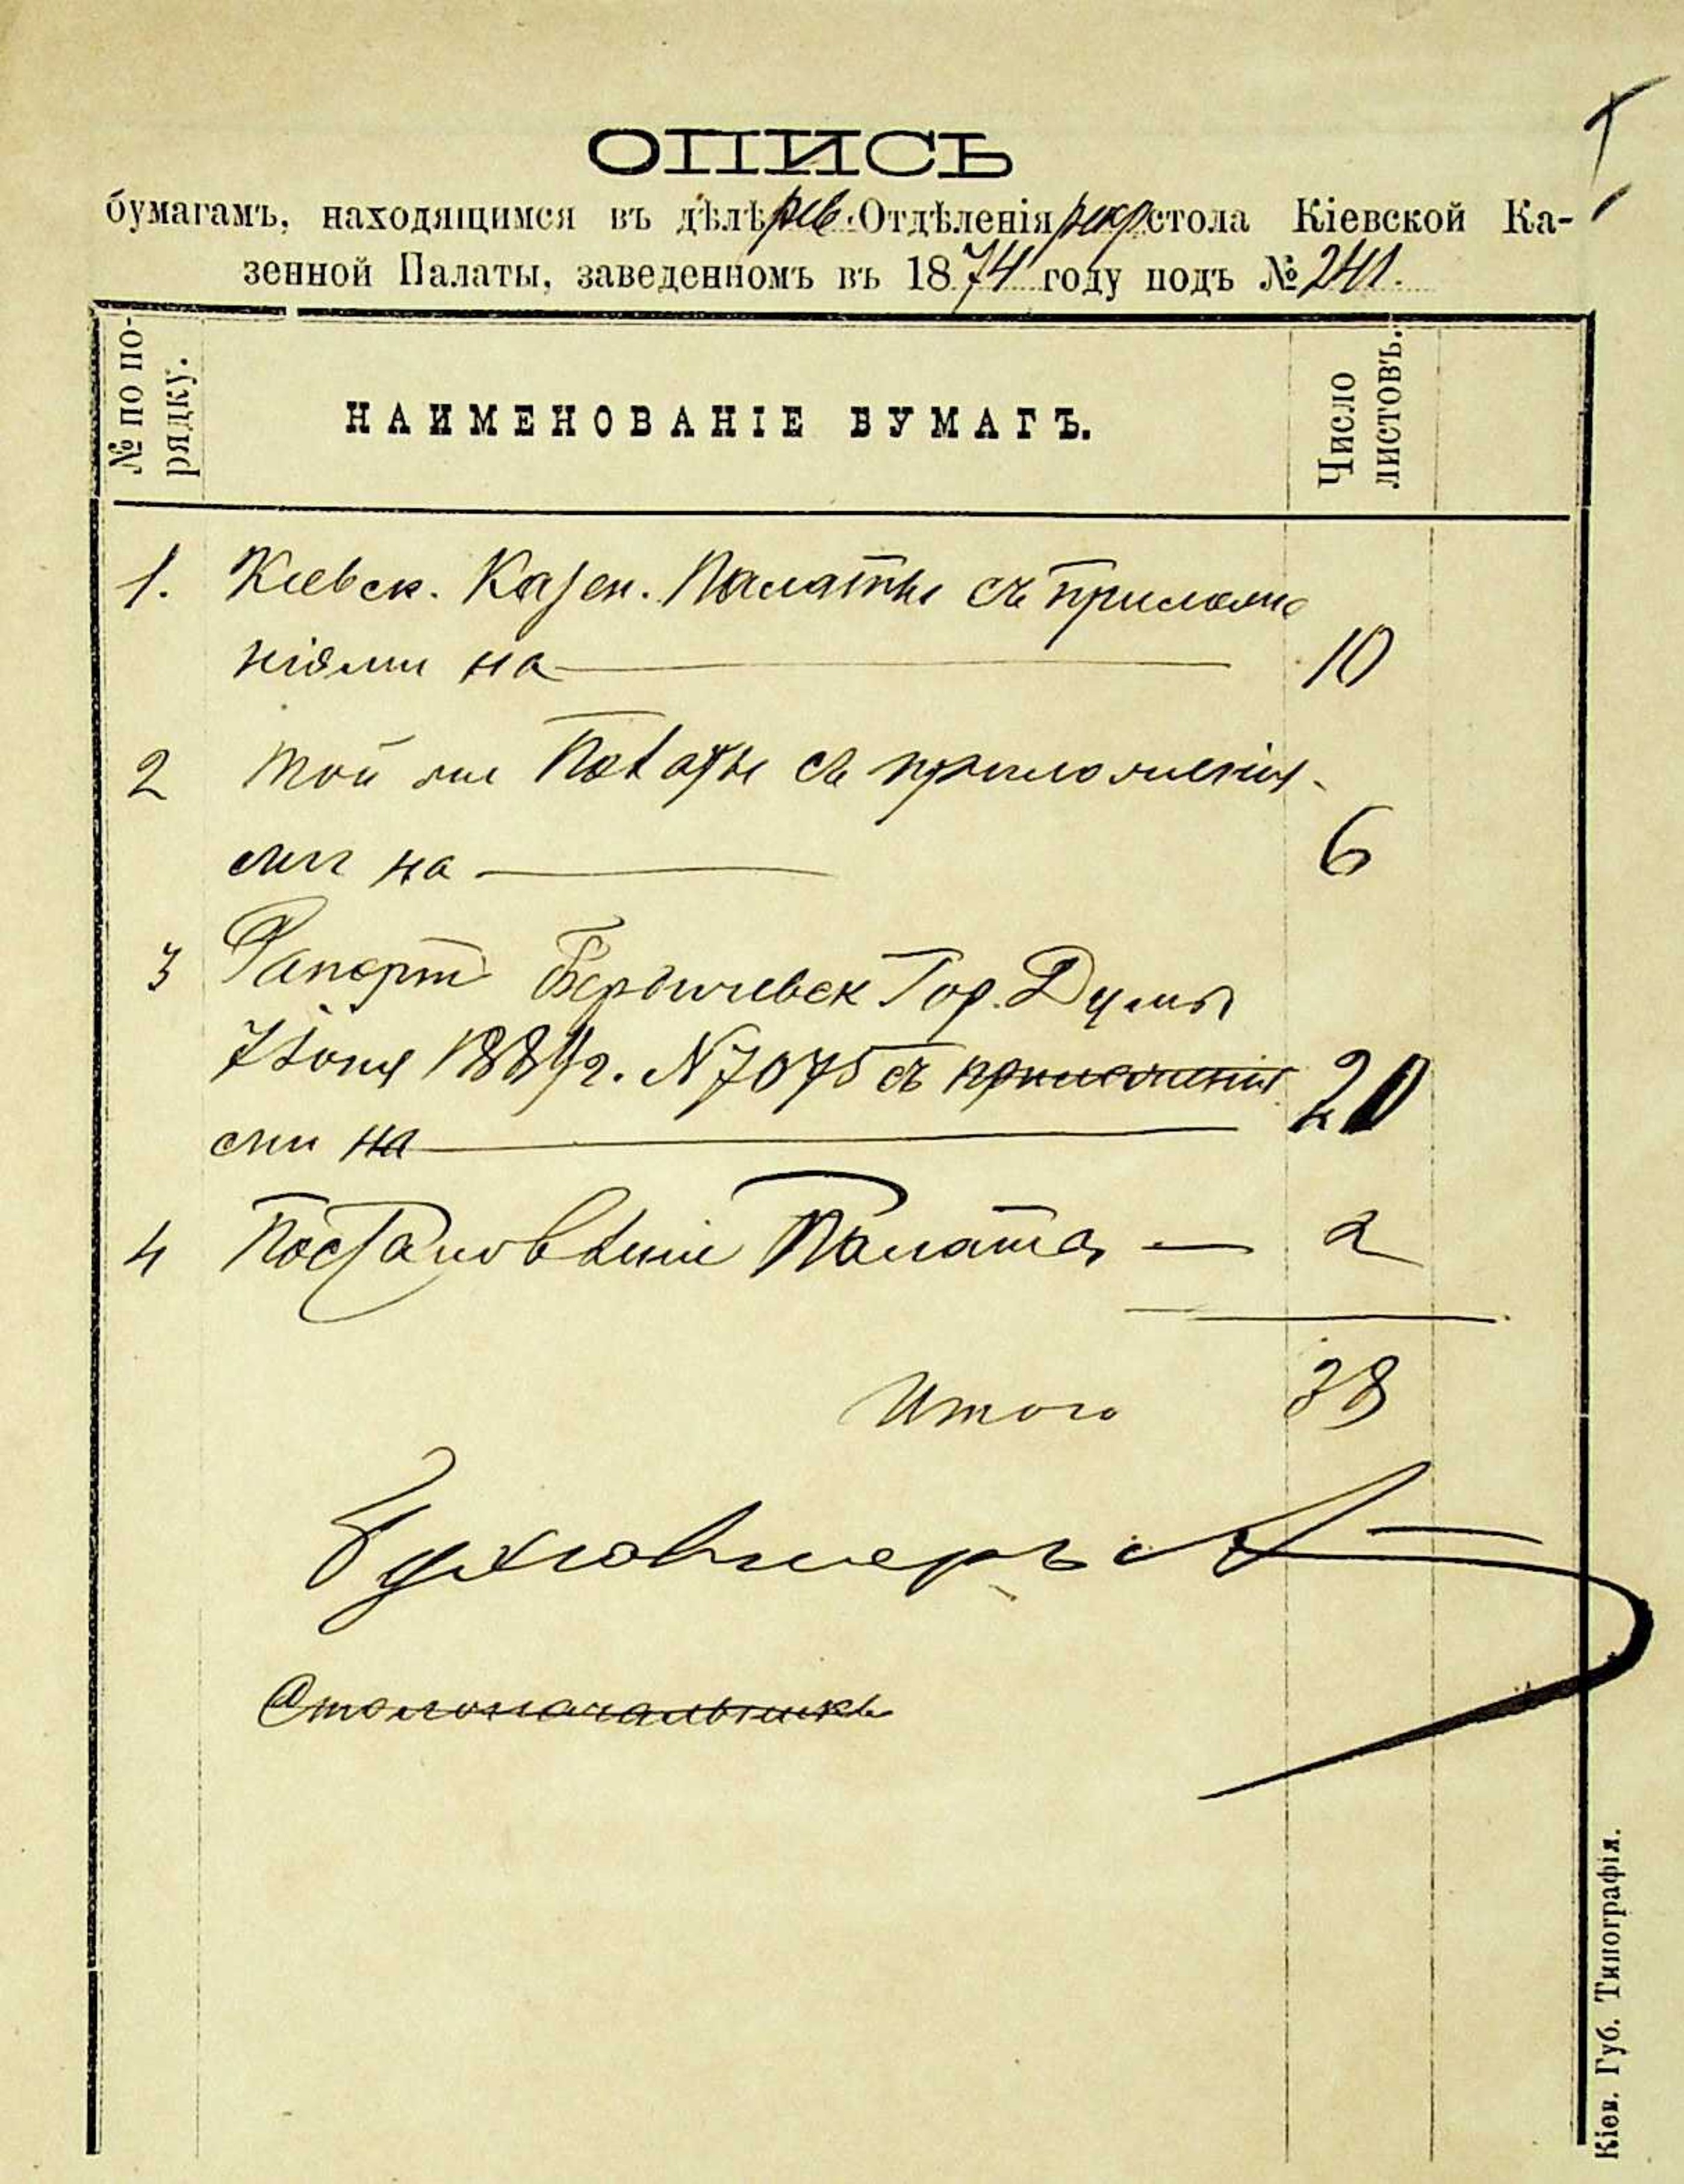 ОПИСЬ
бумагамъ, находящимся въ дѣлѣ рев. Отдѣленія рекр стола Кіевской Ка-
зенной Палаты, заведенномъ въ 1874 году подъ № 241.
№ по по-
рядку.
НАИМЕНОВАНІЕ БУМАГЪ.
Число
листовъ.
1. Кіевск. Казен. Палаты съ приложе
ніями на 10
2 Той же Палаты съ приложенія-
ми на 6
3 Рапортъ Бердичевск Гор. Думы
7 Іюня 1881 г. N 7075 съ приложенія
ми на 20
4 Постановленіе Палаты — 2
Итого 38
Бухгалтеръ
Столоначальникъ
Кіев. Губ. Типографія.